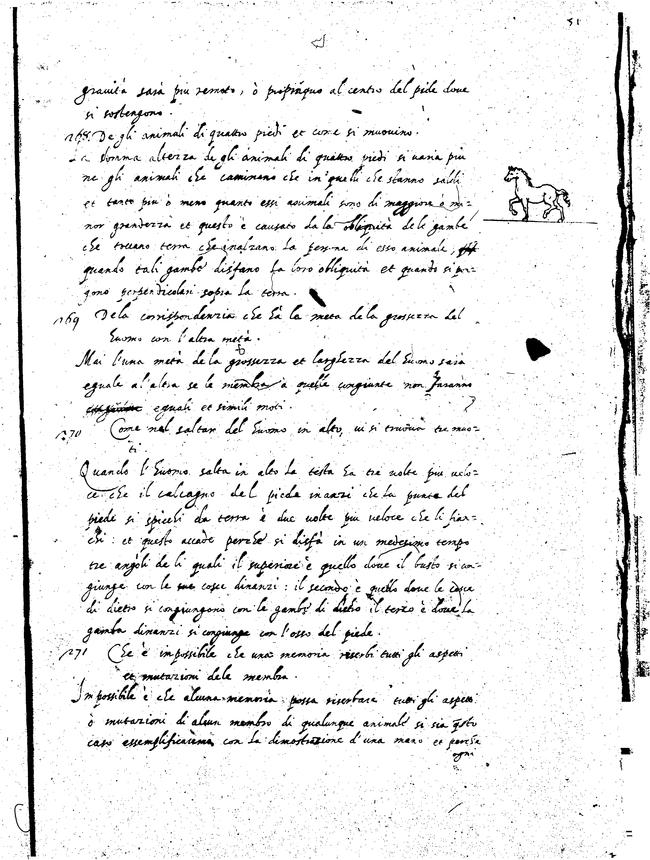 51
gravità sarà piu remoto, ò propinquo al centro del piede dove
si sostengono.
268. De gli animali di quattro piedi et come si muovino.
La somma altezza de gli animali di quattro piedi si varia piu
ne gli animali che caminano che in quelli che stanno saldi
et tanto piu ò meno quanto essi animali sono di maggiore ò mi=
nor grandezza et questo è causato da la obliquità dele gambe
che trovano terra che inalzano la persona di esso animale,
quando tali gambe disfano la loro obliquità et quando si pon=
gono perpendicolari sopra la terra.
269 Dela corrispondenzia che hà la metà dela grossezza del
huomo con l'altra metà.
Mai l'una metà de la grossezza et larghezza del huomo sarà
eguale a l'altra se le membra à quelle congiunte non faranno
eguali et simili moti.
270 Come nel saltar del huomo in alto, vi si trovano tre mo=
ti
Quando l'huomo salta in alto la testa ha tre volte piu velo=
ce che il calcagno del piede inanzi che la punta del
piede si spichi da terra è due volte piu veloce che li fian=
chi: et questo accade perche si disfà in un medesimo tempo
tre angoli de li quali il superiore è quello dove il busto si con=
giunge con le cosce dinanzi: il secondo è quello dove le cosce
di dietro si congiungono con le gambe di dietro il terzo è dove la
gamba dinanzi si congiunge con l'osso del piede.
271 Che è impossibile che una memoria riserbi tutti gli aspetti
et mutazioni dele membra.
Impossibile è che alcuna memoria possa riserbare tutti gli aspetti
ò mutazioni di alcun membro di qualunque animale si sia questo
caso essemplificaremo con la dimostrazione d'una mano et perche
ogni